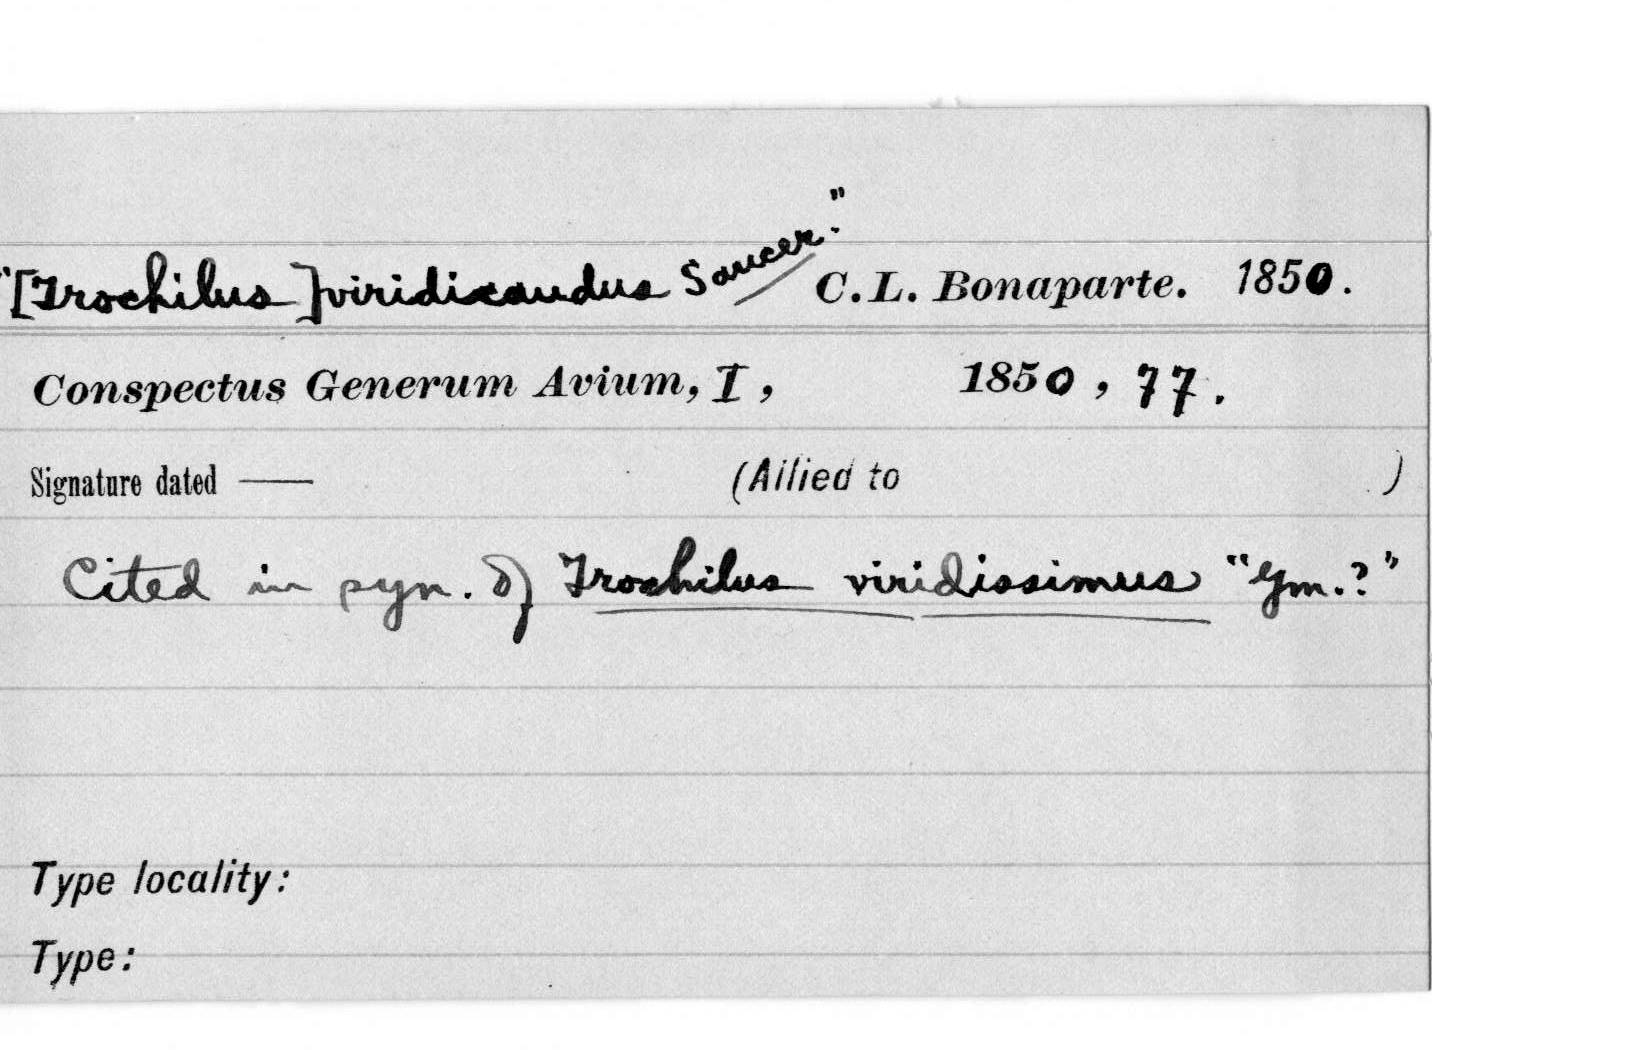 "[Trochilus]viridicaudus Saucer." C.L. Bonaparte. 1850.
Conspectus Generum Avium, I, 1850, 77.
Signature dated — (Allied to )
Cited in syn. of Trochilus viridissimus "Gm.?"
Type locality:
Type: